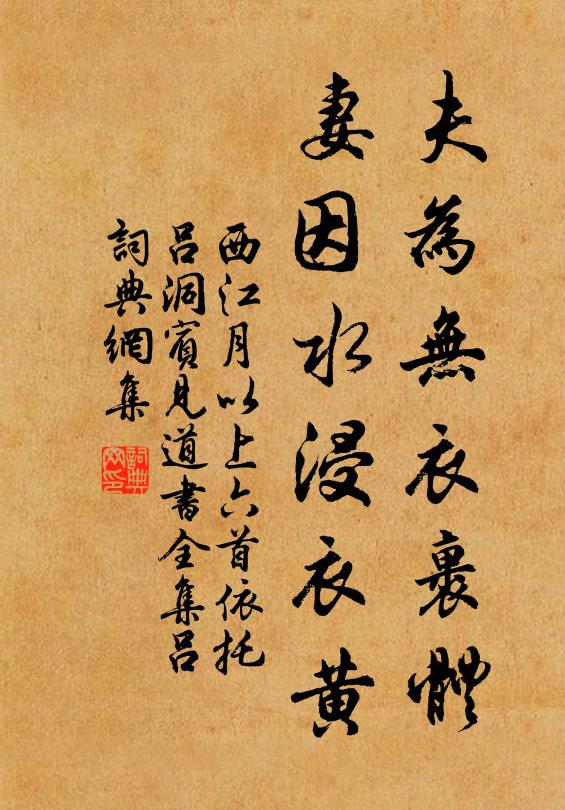 夫為無衣裹體
妻因水浸衣黄
西江月以上六首依托
呂洞賓見道書全集呂
詞典網集
詞典
网印